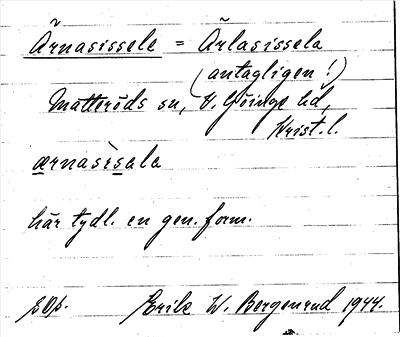 Ärnasissele = Ärlasissela
(antagligen!)
Matteröds sn, V. Göinge hd,
Krist. l.
ærnasìsala
här tydl. en gen. form.
sOp. Erik W. Bergenrud 1944.